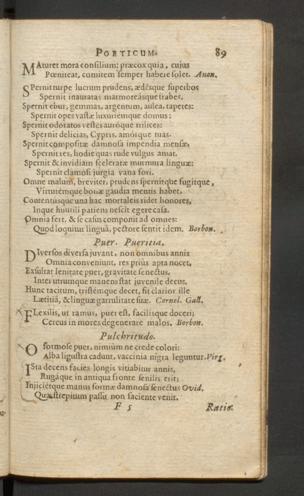 POETICUM. 89
MAturet mora consilium; præcox quia, cuius
Pœniteat, comitem semper habere solet. Anon.
SPernit turpe lucrum prudens, ædesque superbos
Spernit inauratas marmoreasque trabes.
Spernit ebur, gemmas, argentum, aulea, tapetes:
Spernit opes vastæ luxuriemque domus:
Spernit odoratos vestes auroque nitices:
Spernit delicias, Cypris, amorisque tuas.
Spernit compositæ damnosa impendia mensæ,
Spernit res, hodie quas rude vulgus amat.
Spernit & invidiam sceleratæ murmura linguæ:
Spernit clamosi jurgia vana fori.
Omne malum, breviter, prudens spernitque fugitque,
Virtutemque bonæ gaudia mentis habet.
Contentusque una hac mortaleis ridet honores,
Inque humili patiens nescit egere casa.
Omnia fert, & se casum componit ad omnes:
Quod loquitur linguâ, pectore sentit idem. Borbon.
Puer. Pueritia.
DIversos diversa juvant, non omnibus annis
Omnia conveniunt, res prius apta nocet,
Exsultat levitate puer, gravitate senectus.
Inter utrumque manens stat juvenile decus.
Hunc tacitum, tristemque decet, fit clarior ille
Lætitiâ, & linguæ garrulitate suæ. Cornel. Gall.
FLexilis, ut ramus, puer est, facilisque doceri;
Cereus in mores degenerare malos. Borbon.
Pulchritudo.
O Formose puer, nimium ne crede colori:
Alba ligustra cadunt, vaccinia nigra leguntur. Virg.
ISta decens facies longis vitiabitur annis,
Rugaque in antiqua fronte senilis erit;
Injicietque manus formæ damnosa senectus Ovid.
Quæ strepitum passu non faciente venit.
F 5 Ratio